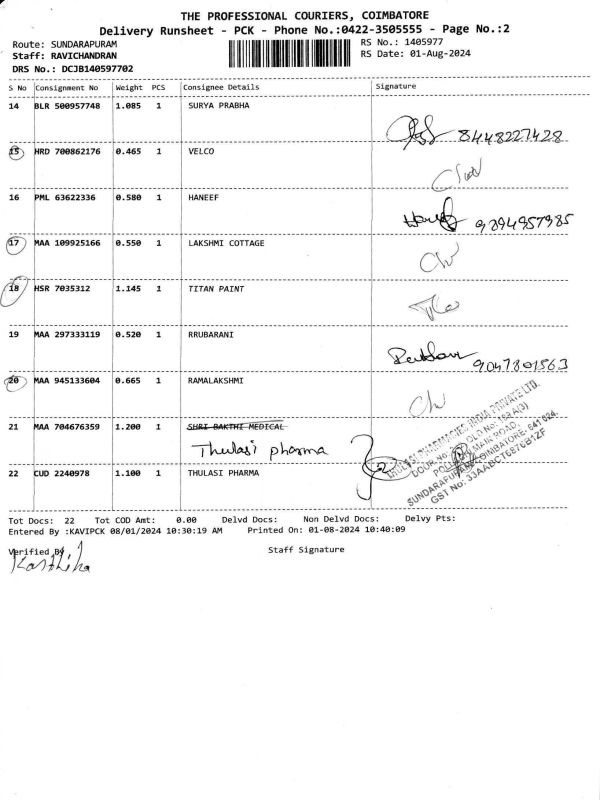 THE PROFESSIONAL COURIERS, COIMBATORE
Delivery Runsheet - PCK - Phone No.:0422-3505555 - Page No.:2
Route: SUNDARAPURAM RS No.: 1405977
Staff: RAVICHANDRAN RS Date: 01-Aug-2024
DRS No.: DCJB140597702
S No Consignment No Weight PCS Consignee Details Signature
14 BLR 500957748 1.085 1 SURYA PRABHA
8448227428
15 HRD 700862176 0.465 1 VELCO
16 PML 63622336 0.580 1 HANEEF
9894957985
17 MAA 109925166 0.550 1 LAKSHMI COTTAGE
18 HSR 7035312 1.145 1 TITAN PAINT
19 MAA 297333119 0.520 1 RRUBARANI
9047801563
20 MAA 945133604 0.665 1 RAMALAKSHMI
21 MAA 704676359 1.200 1 SHRI BAKTHI MEDICAL
Thulasi pharma
22 CUD 2240978 1.100 1 THULASI PHARMA
THULASI PHARMACIES INDIA PRIVATE LTD.
OLD No: 189 A(3)
MAIN ROAD,
SUNDARAPURAM, COIMBATORE- 641 024.
GST No: 33AABCT6876B1ZF
Tot Docs: 22 Tot COD Amt: 0.00 Delvd Docs: Non Delvd Docs: Delvy Pts:
Entered By :KAVIPCK 08/01/2024 10:30:19 AM Printed On: 01-08-2024 10:40:09
Verified By Staff Signature
Karthika